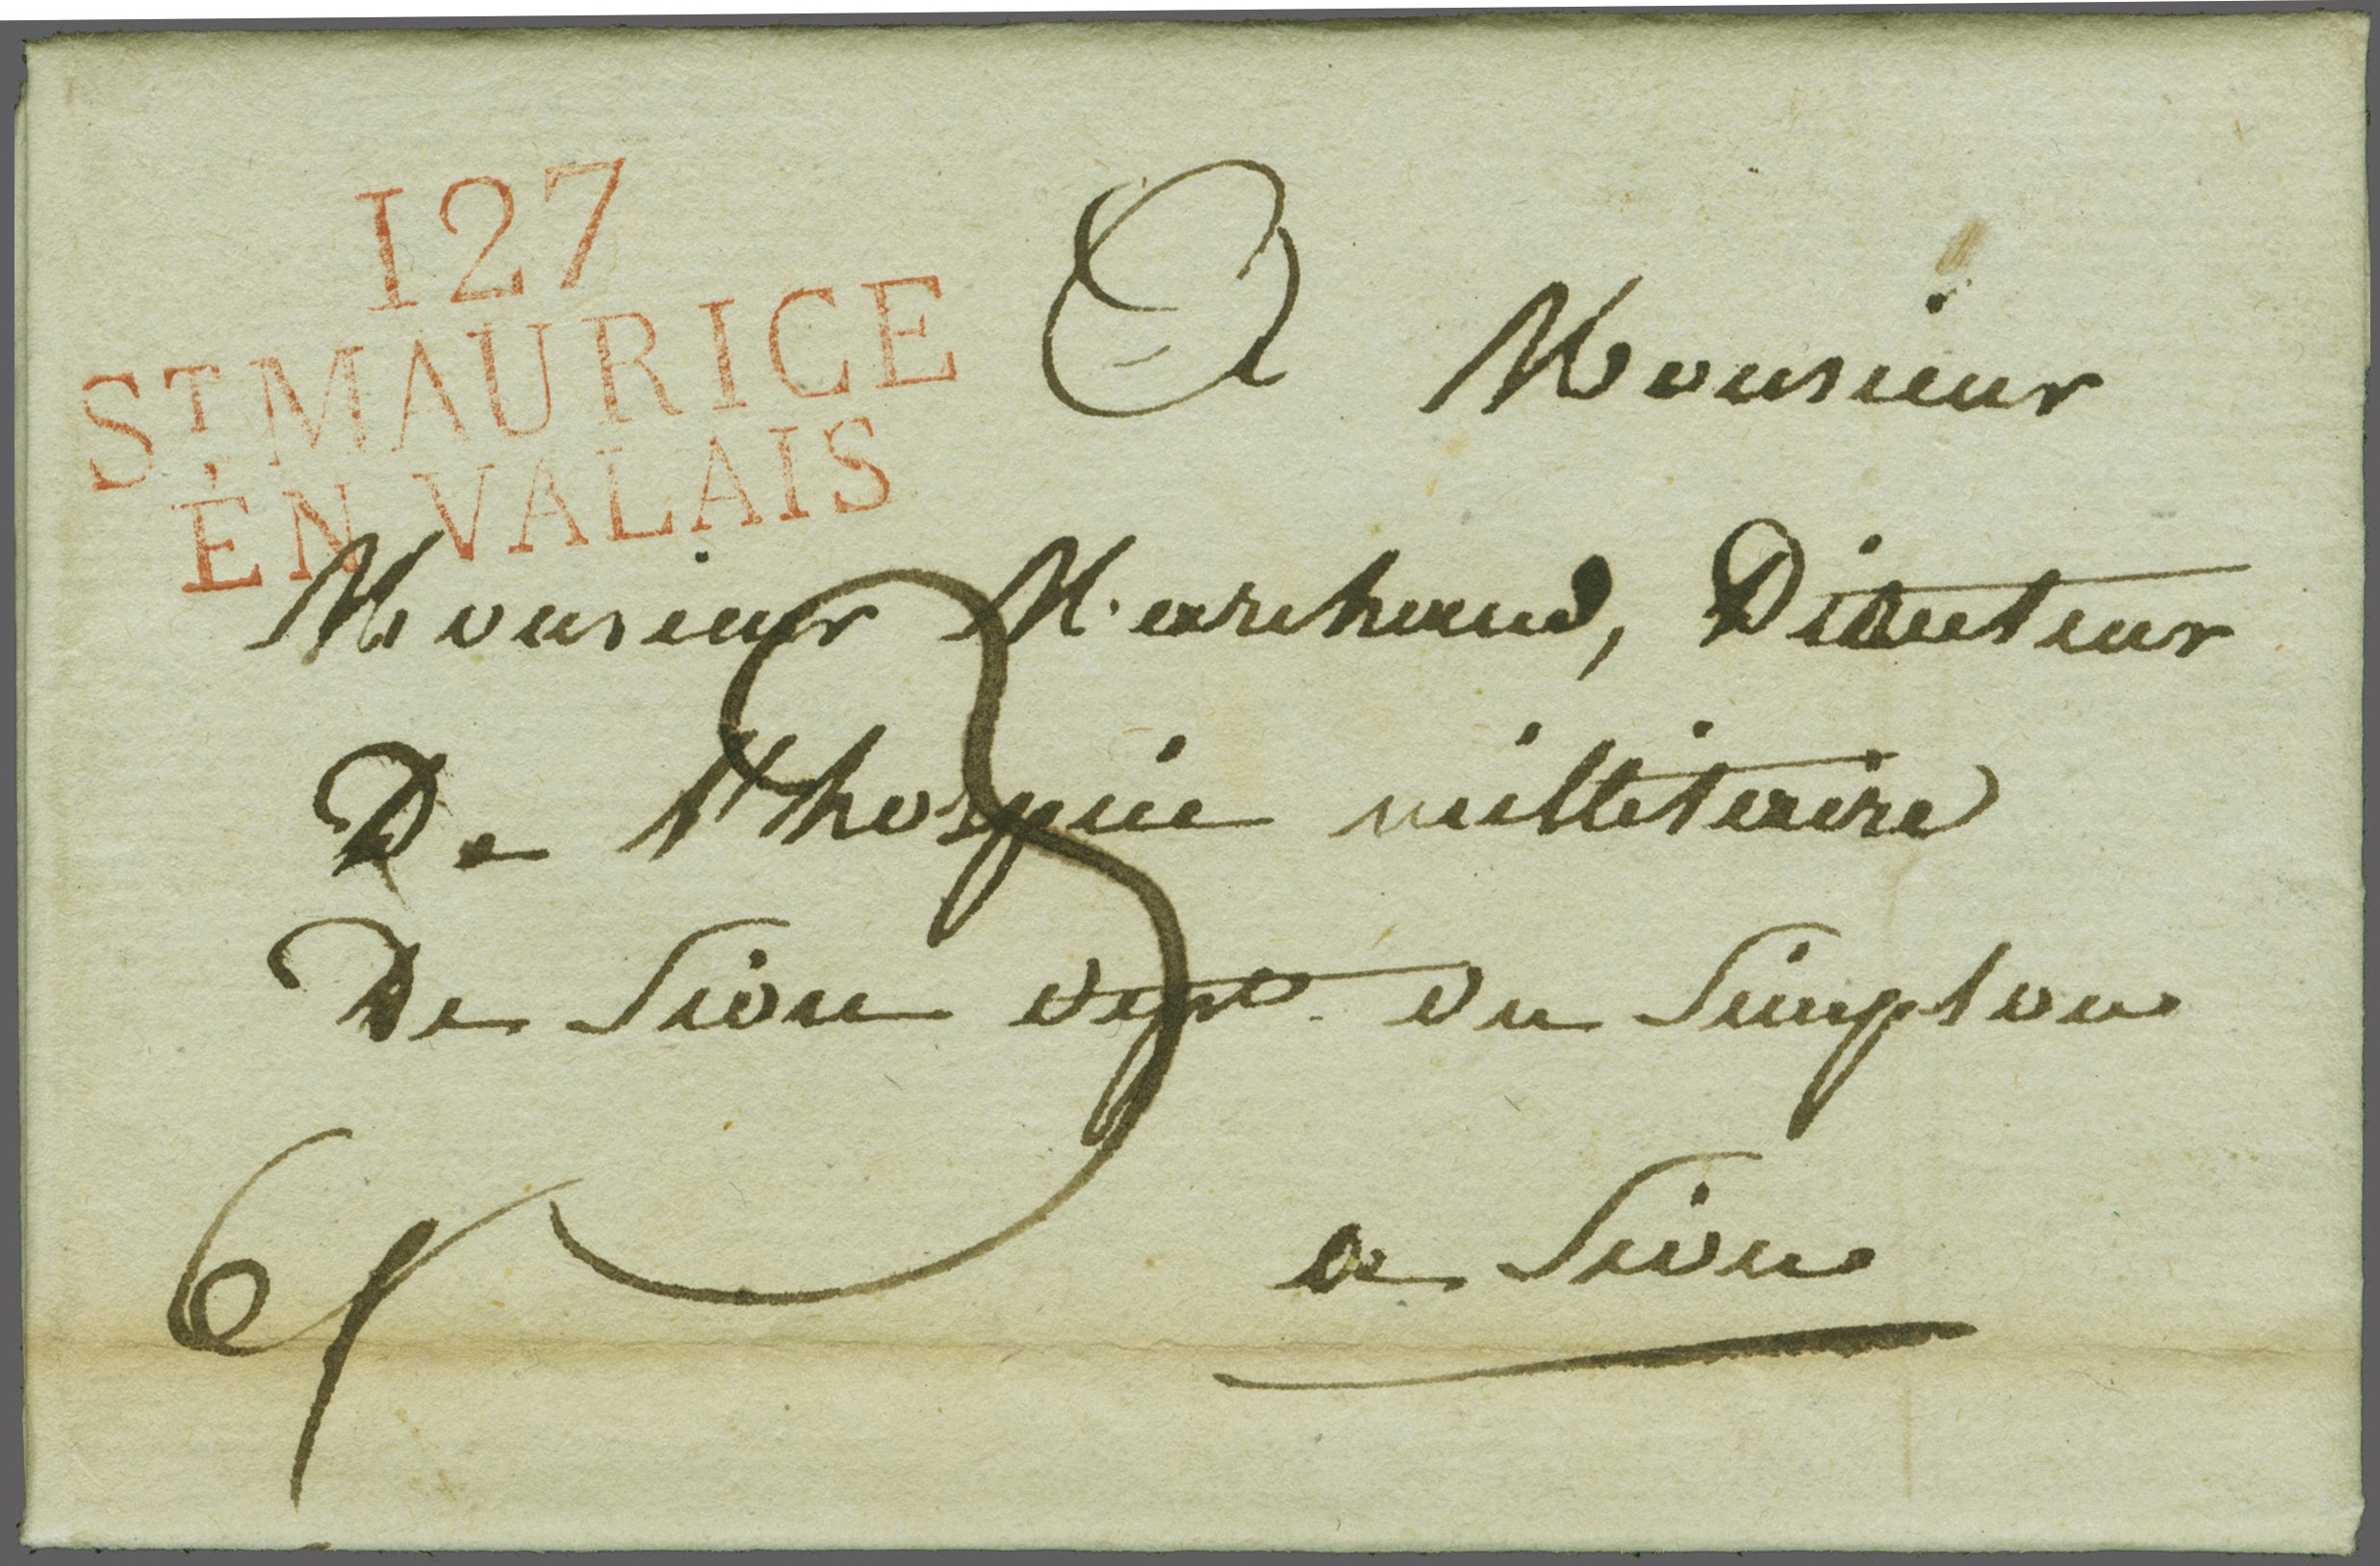 127
ST MAURICE
EN VALAIS
A Monsieur
Monsieur Marchand, Directeur
De l'hospice millitaire
De Sion dept. du Simplon
3
a Sion